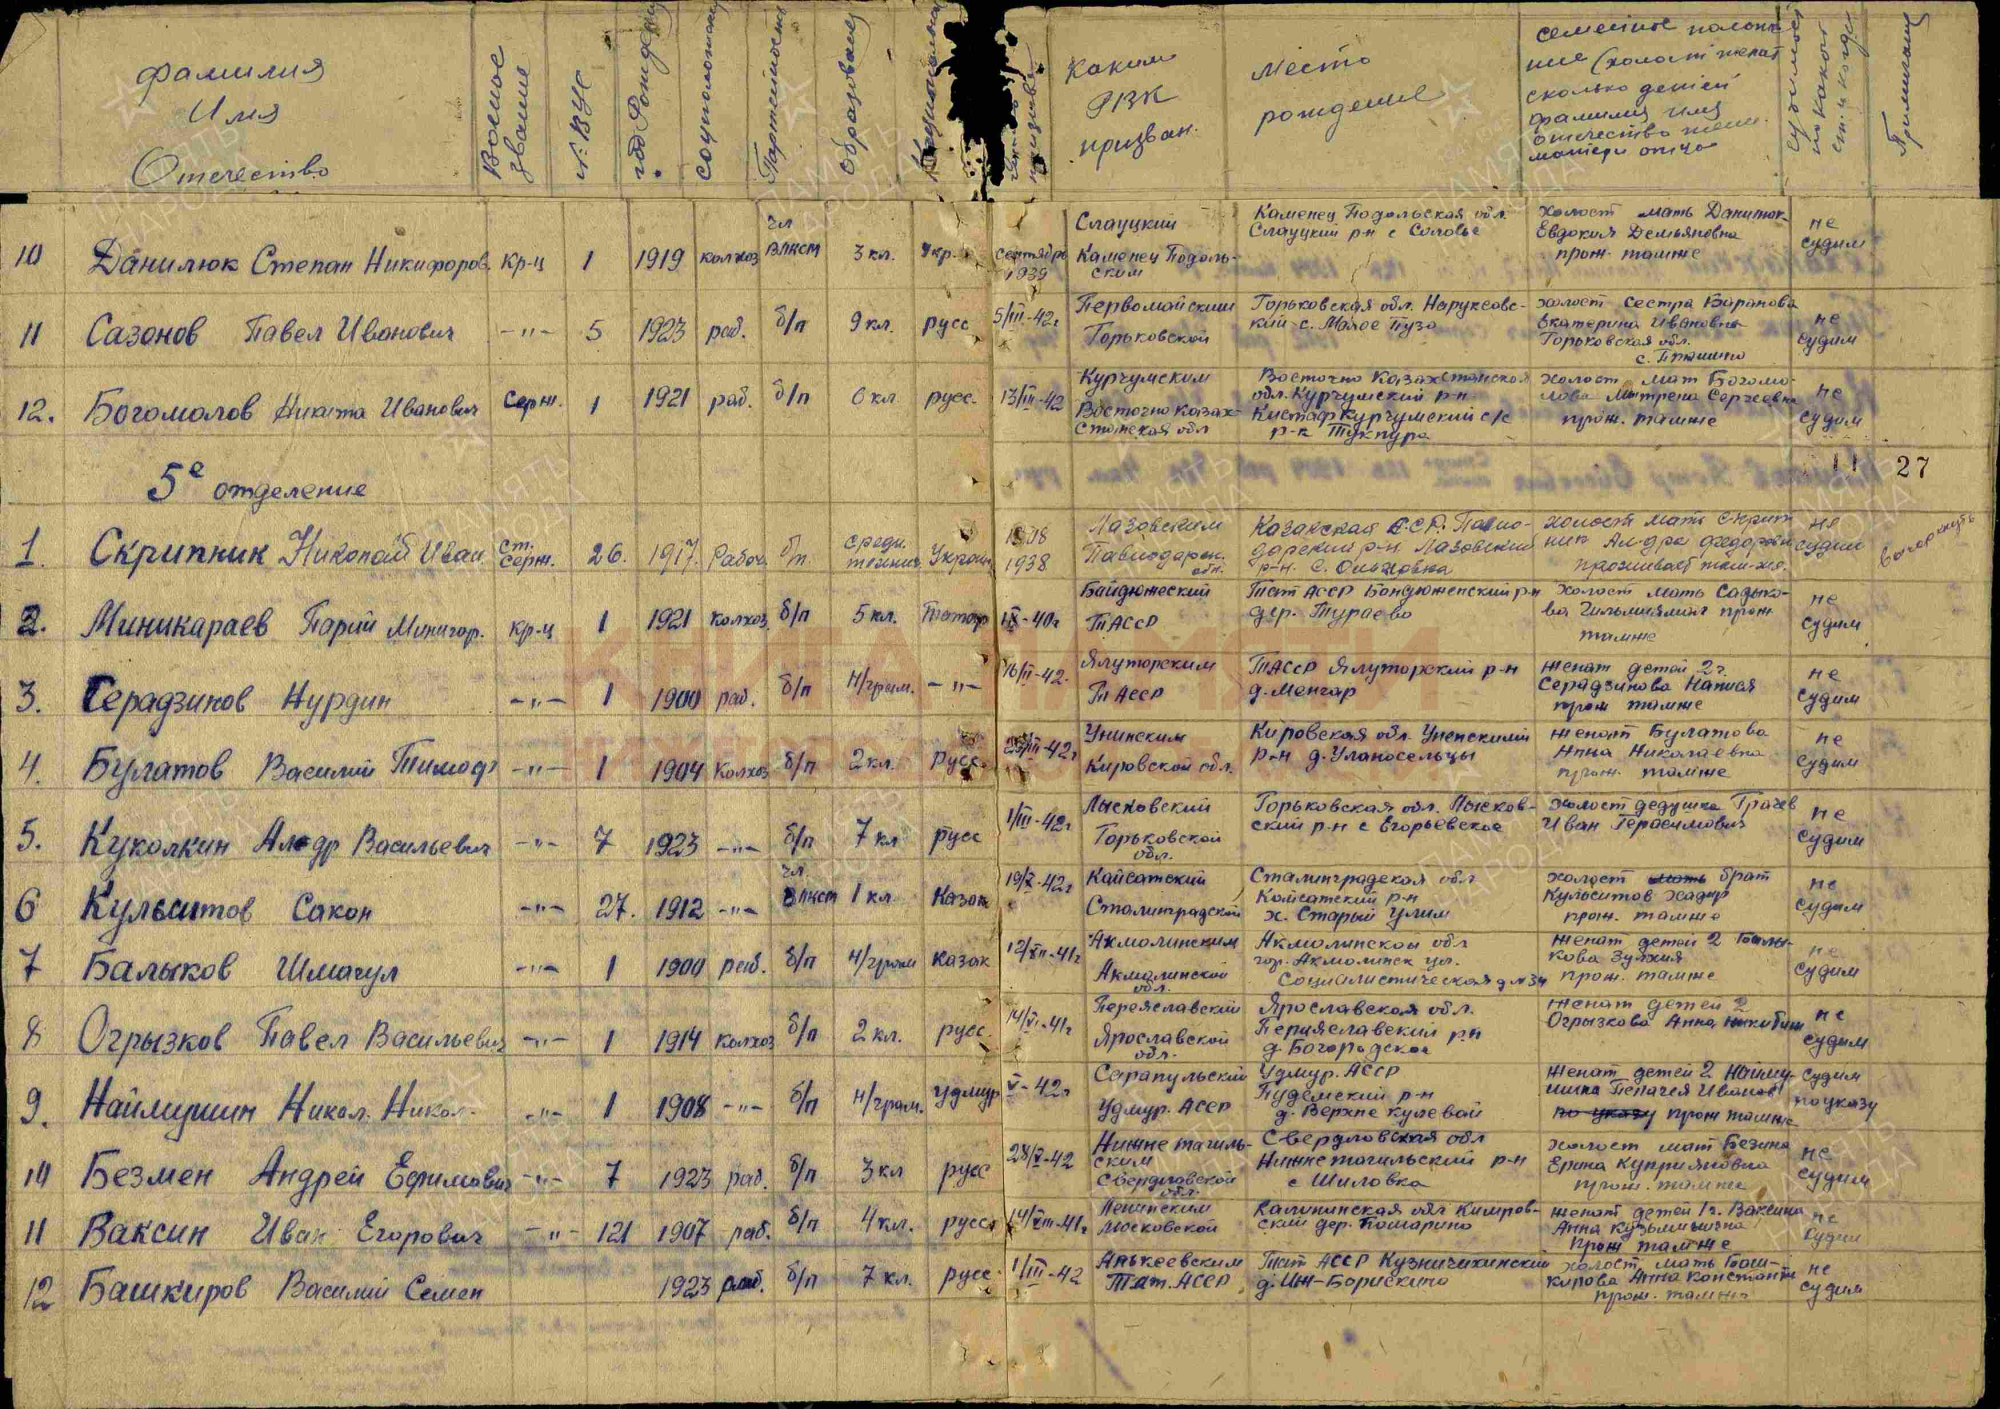 фамилия
Имя
Отчество
Военое звание
№ ВУС
год Рождения
соцположение
Партейность
образование
Каким
РВК
призван.
Место
рождения
семейное положе-
ние (холост женат
сколько детей
фамилия имя
отчество жены.
матери отца
10 Данилюк Степан Никифоров. кр-ц 1 1919 колхоз чл ВЛКСМ 3 кл. укр. сентябрь 1939 Слауцкий Каменец Подоль-ском Каменец Подольская обл. Слауцкий р-н с Соловье холост мать Данилюк Евдокия Демьяновна прож. тамже не судим
11 Сазонов Павел Иванович -"- 5 1923 раб. б/п 9 кл. русс 5/III-42г Первомайским Горьковской Горьковская обл. Наруксовс-кий с. Малое Пузо холост сестра Баранова Екатерина Ивановна Горьковская обл. не судим
12. Богомолов Никита Иванович серж. 1 1921 раб. б/п 6 кл. русс. 13/III-42 Курчумским Восточно Казах-станская обл Восточно Казахстанская обл. Курчумский р-н холост мат Богомо-лова Матрена Сергеевна прож. тамже не судим
5е отделение
27
1. Скрипник Николай Иван ст. серж. 26. 1917. Рабоч. б/п. средн. технич. Украин 1938 Лазовским Павлодарск. обл. Казахская С.С.Р. Павло-дарский р-н. Лазовский р-н. с. Ольховка холост мать Скрип-ник Ал-дра Федоровн проживает там-же. не судим
2. Миникараев Гарий Минигар. кр-ц 1 1921 колхоз. б/п 5 кл. Татар IX-40г Байдюжеский ТАССР Тат АССР Бондюженский р-н дер. Тураево холост мать Садыко-ва прож тамже не судим
3. Серадзинов Нурдин -"- 1 1900 раб. б/п н/грам. -"- 16/II-42. Ялуторским ТАССР ТАССР Ялуторский р-н д. Менгар женат детей 2г. Серадзинова Написа прож тамже не судим
4. Булатов Василий Тимоф -"- 1 1904 колхоз б/п 2 кл. русс. III-42г Унинским Кировской обл. Кировская обл. Уненский р-н д. Уланосельцы женат Булатова Анна Николаевна прож. тамже не судим
5. Куколкин Ал-др Васильевич -"- 7 1923 -"- б/п 7 кл русс 1/III-42г Лысковский Горьковской обл. Горьковская обл. Лысков-ский р-н с Егорьевское холост дедушка Грачев Иван Герасимович не судим
6 Кульситов Сакон -"- 27. 1912 -"- чл. ВЛКСМ 1 кл Казах 19/X-42г Кайсатский Сталинградской Сталинградская обл Кайсатский р-н х. Старый Улим холост мать брат Кульситов Хадир прож. тамже не судим
7 Балыков Шмагул -"- 1 1900 раб. б/п н/грам казах 12/XII-41г Акмолинским Акмолинской обл. Акмолинской обл гор. Акмолинск ул. Социалистическая д №34 женат детей 2 Балы-кова Зулхия прож. тамже не судим
8 Огрызков Павел Васильевич -"- 1 1914 колхоз б/п 2 кл. русс. 14/VI-41г Переяславский Ярославской обл. Ярославская обл. Переяславский р-н д. Богородское женат детей 2 Огрызкова Анна не судим
9. Наймушин Никол. Никол. -"- 1 1908 -"- б/п н/грам. удмур V-42г Сарапульский Удмур. АССР Удмур. АССР Пудемский р-н д. Верхне кулевай женат детей 2 Найму-шина Пелагея Иванов по указу прож тамже судим по указу
10 Безмен Андрей Ефимович -"- 7 1923 раб. б/п 3 кл русс 28/V-42 Нижне тагиль-ским Свердловской обл. Свердловская обл Нижнетагильский р-н с Шиловка холост мат Безмена Ерина Куприяновна прож. тамже не судим
11 Ваксин Иван Егорович -"- 121 1907 раб. б/п 4 кл. русск 14/VIII-41г Ленинским Московской Калининская обл Кимров-ский дер. Комарино женат детей 1г. Ваксина Анна Кузьминична прож тамже не судим
12 Башкиров Василий Семен 1923 раб. б/п 7 кл. русс. 1/III-42 Алькеевским Тат. АССР Тат АССР Кузничихинский д. Иж-Борискино холост, мать Баш-кирова Анна Константи прож. тамже не судим